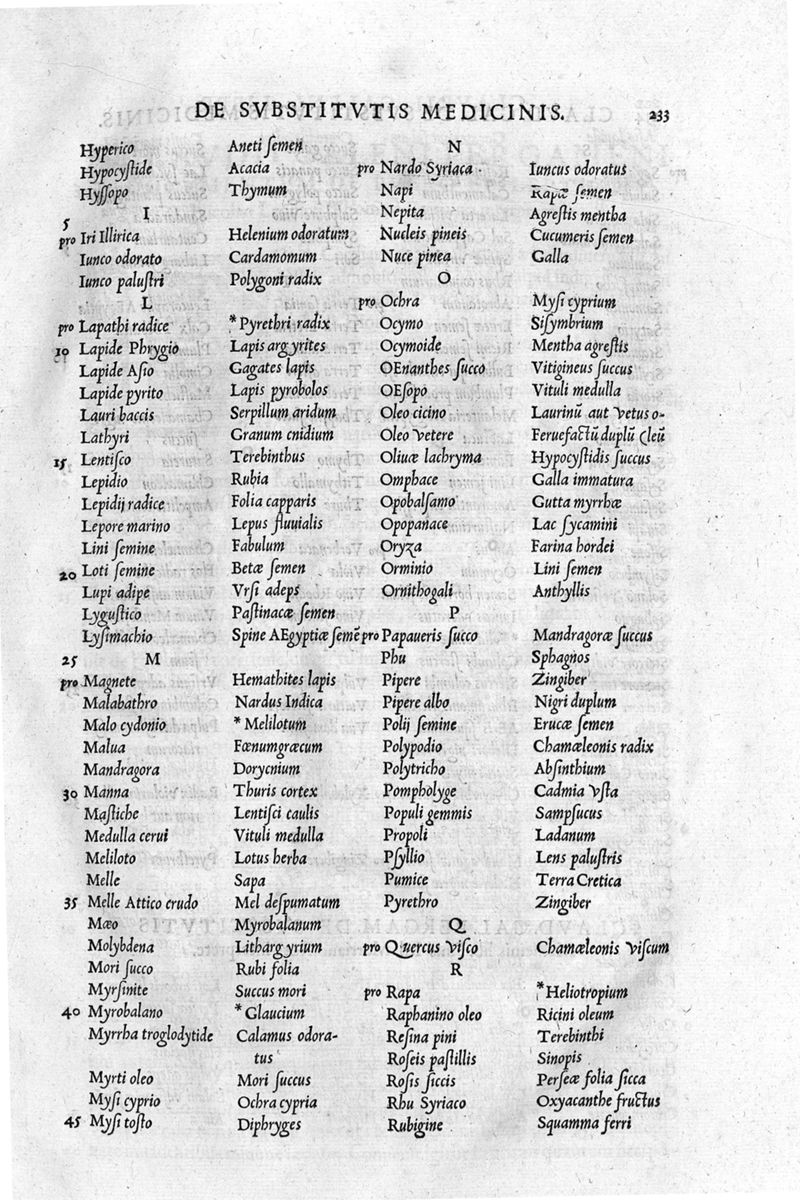 DE SVBSTITVTIS MEDICINIS. 233
Hyperico Aneti ſemen
Hypocyſtide Acacia
Hyſſopo Thymum
I
5
pro Iri Illirica Helenium odoratum
Iunco odorato Cardamomum
Iunco paluſtri Polygoni radix
L
pro Lapathi radice * Pyrethri radix
10 Lapide Phrygio Lapis argyrites
Lapide Aſio Gagates lapis
Lapide pyrito Lapis pyrobolos
Lauri baccis Serpillum aridum
Lathyri Granum cnidium
15 Lentiſco Terebinthus
Lepidio Rubia
Lepidij radice Folia capparis
Lepore marino Lepus fluuialis
Lini ſemine Fabulum
20 Loti ſemine Betæ ſemen
Lupi adipe Vrſi adeps
Lyguſtico Paſtinacæ ſemen
Lyſimachio Spine AEgyptiæ ſemē
25 M
pro Magnete Hemathites lapis
Malabathro Nardus Indica
Malo cydonio * Melilotum
Malua Fœnumgræcum
Mandragora Dorycnium
30 Manna Thuris cortex
Maſtiche Lentiſci caulis
Medulla cerui Vituli medulla
Meliloto Lotus herba
Melle Sapa
35 Melle Attico crudo Mel deſpumatum
Mæo Myrobalanum
Molybdena Lithargyrium
Mori ſucco Rubi folia
Myrſinite Succus mori
40 Myrobalano * Glaucium
Myrrha troglodytide Calamus odora-
tus
Myrti oleo Mori ſuccus
Myſi cyprio Ochra cypria
45 Myſi toſto Diphryges
N
pro Nardo Syriaca Iuncus odoratus
Napi Rapæ ſemen
Nepita Agreſtis mentha
Nucleis pineis Cucumeris ſemen
Nuce pinea Galla
O
pro Ochra Myſi cyprium
Ocymo Siſymbrium
Ocymoide Mentha agreſtis
OEnanthes ſucco Vitigineus ſuccus
OEſopo Vituli medulla
Oleo cicino Laurinū aut vetus o-
Oleo vetere Feruefactū duplū (leū
Oliuæ lachryma Hypocyſtidis ſuccus
Omphace Galla immatura
Opobalſamo Gutta myrrhæ
Opopanace Lac ſycamini
Oryza Farina hordei
Orminio Lini ſemen
Ornithogali Anthyllis
P
pro Papaueris ſucco Mandragoræ ſuccus
Phu Sphagnos
Pipere Zingiber
Pipere albo Nigri duplum
Polij ſemine Erucæ ſemen
Polypodio Chamæleonis radix
Polytricho Abſinthium
Pompholyge Cadmia vſta
Populi gemmis Sampſucus
Propoli Ladanum
Pſyllio Lens paluſtris
Pumice Terra Cretica
Pyrethro Zingiber
Q
pro Quercus viſco Chamæleonis viſcum
R
pro Rapa * Heliotropium
Raphanino oleo Ricini oleum
Reſina pini Terebinthi
Roſeis paſtillis Sinopis
Roſis ſiccis Perſeæ folia ſicca
Rhu Syriaco Oxyacanthe fructus
Rubigine Squamma ferri